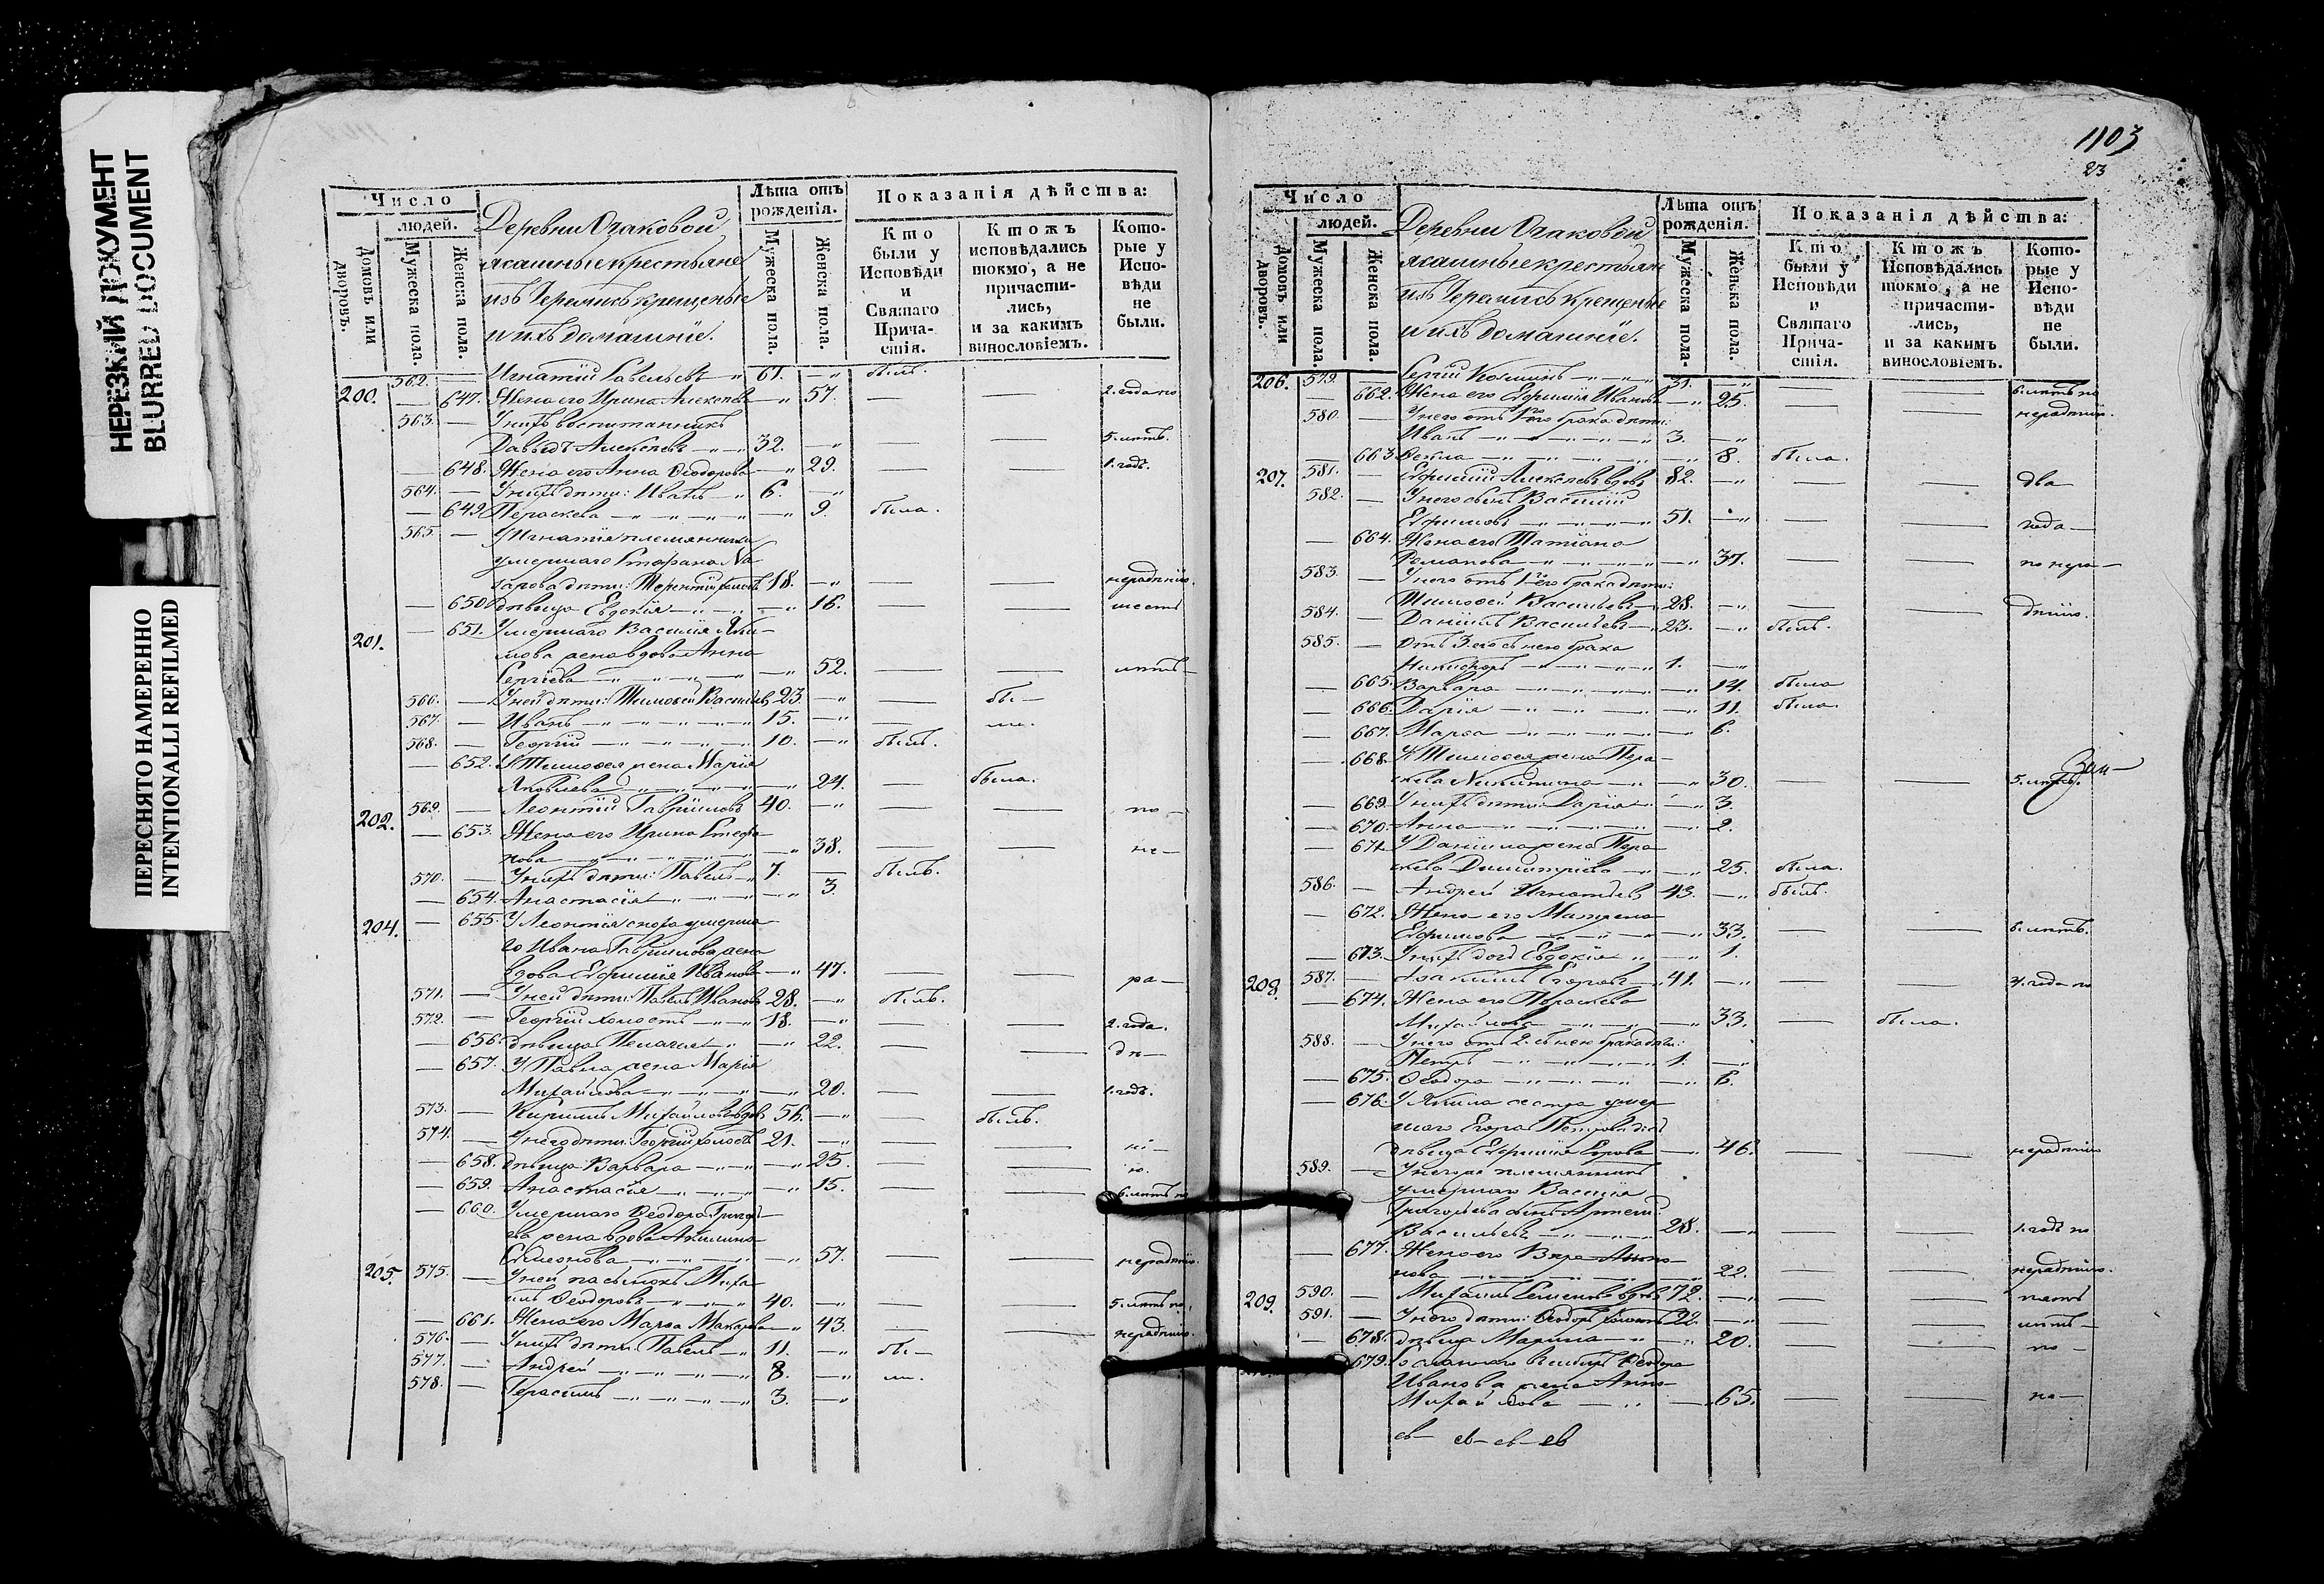 НЕРЕЗКИЙ ДОКУМЕНТ
BLURRED DOCUMENT
ПЕРЕСНЯТО НАМЕРЕННО
INTENTIONALLI REFILMED
Число
людей.
Домовъ или дворовъ.
Мужеска пола.
Женска пола.
Деревни Очаковой
ясашные крестьяне
изъ Черемисъ крещеные
и ихъ домашніе.
Лѣта отъ рожденія.
Мужеска пола.
Женска пола.
Показанія дѣйства:
Кто были у Исповѣди и Святаго Прича-стія.
Ктожъ исповѣдались токмо, а не причасти-лись, и за какимъ винословіемъ.
Кото-рые у Испо-вѣди не были.
200. 562. Игнатій Савельевъ 61. былъ.
647. Жена его Ирина Алексѣева 57. 2. года по
563. У нихъ воспитанникъ
Давыдъ Алексѣевъ 32. 5. лѣтъ.
648. Жена его Анна Ѳеодорова 29. 1. годъ.
564. У нихъ дѣти: Иванъ 6.
649. Пераскева 9. была.
565. У Игнатія племянника
умершаго Стефана
дѣти: 18. нерадѣнію.
650. дѣвица Евдокія 16. шесть
201. 651. Умершаго Василія
жена вдова Анна
Сергіева 52. лѣтъ
566. У ней дѣти: Тимоѳей Васильевъ 23. бы-
567. Иванъ 15. ли.
568. Георгій 10. былъ.
652. У Тимоѳея жена Марія
Яковлева 24. была.
202. 569. Леонтій Гавриловъ 40. по
653. Жена его Ирина Стефа
нова 38. не-
570. У нихъ дѣти: Павелъ 7. былъ.
654. Анастасія 3.
204. 655. У Леонтія сноха умерша
го Ивана Гаврилова жена
вдова Евфимія Иванова 47. ра-
571. У ней дѣти: Павелъ Ивановъ 28. былъ.
572. Георгій холостъ 18. 2. года.
656. дѣвица Пелагія 22. дѣ-
657. У Павла жена Марія
Михайлова 20. 1. годъ.
573. Кириллъ Михайловъ вдовъ 56. былъ.
574. У него дѣти: Георгій холостъ 21. ні-
658. дѣвица Варвара 25. ю.
659. Анастасія 15. 6. лѣтъ по
660. Умершаго Ѳеодора Григорь
ева жена вдова Акилина
Симеонова 57. нерадѣнію.
205. 575. У ней пасынокъ Миха
илъ Ѳеодоровъ 40. 5. лѣтъ по
661. Жена его Марѳа Макарова 43. нерадѣнію.
576. У нихъ дѣти: Павелъ 11. бы-
577. Андрей 8. ли.
578. Герасимъ 3.
1103
23
Число
людей.
Домовъ или дворовъ.
Мужеска пола.
Женска пола.
Деревни Очаковой
ясашные крестьяне
изъ Черемисъ крещеные
и ихъ домашніе.
Лѣта отъ рожденія.
Мужеска пола.
Женска пола.
Показанія дѣйства:
Кто были у Исповѣди и Святаго Прича-стія.
Ктожъ Исповѣдались токмо, а не причасти-лись, и за какимъ винословіемъ.
Кото-рые у Испо-вѣди не были.
206. 579. Сергій 31. 6. лѣтъ по
662. Жена его Евфимія Иванова 25. нерадѣнію.
580. У него отъ 1го брака дѣти:
Иванъ 3.
663. Ѳекла 8. была.
207. 581. Евфимій Алексѣевъ вдовъ 82. два
582. У него сынъ Василій
Евфимовъ 51. года
664. Жена его Татіана
Романова 37. по нера-
583. У него отъ 1го брака дѣти:
Тимоѳей Васильевъ 28. дѣнію.
584. Даніилъ Васильевъ 23. былъ.
585. Отъ 3го съ нею брака
Никифоръ 1.
665. Варвара 14. была
666. Дарія 11. была.
667. Марѳа 6.
668. У Тимоѳея жена Пера
скева Никитина 30. 5. лѣтъ.
669. У нихъ дѣти: Дарія 3.
670. Анна 2.
671. У Даніила жена Пера
скева Димитріева 25. была.
586. Андрей Игнатьевъ 43. былъ.
672. Жена его Матрена
Евфимова 33. 6. лѣтъ.
673. У нихъ дочь Евдокія 1.
208. 587. Егоровъ 41. 4. года по
674. Жена его Пераскева
Михайлова 33. была.
588. У него отъ 2. съ нею брака дѣти:
Петръ 1.
675. Ѳеодора 6.
676. сестра умер
шаго Егора Петрова дочь
дѣвица Евфимія Егорова 46. нерадѣнію
589. У него же племянникъ
умершаго Василія
Григорьева сынъ Артемій
Васильевъ 28. 1. годъ по
677. Жена его Вѣра
нова 22. нерадѣнію.
209. 590. Михаилъ Семеновъ вдовъ 72. пять
591. У него дѣти: Ѳеодоръ холостъ 22. лѣтъ
678. дѣвица Марина 20. по
679. Ѳеодора
Иванова жена Анна
Михайлова 65. не-